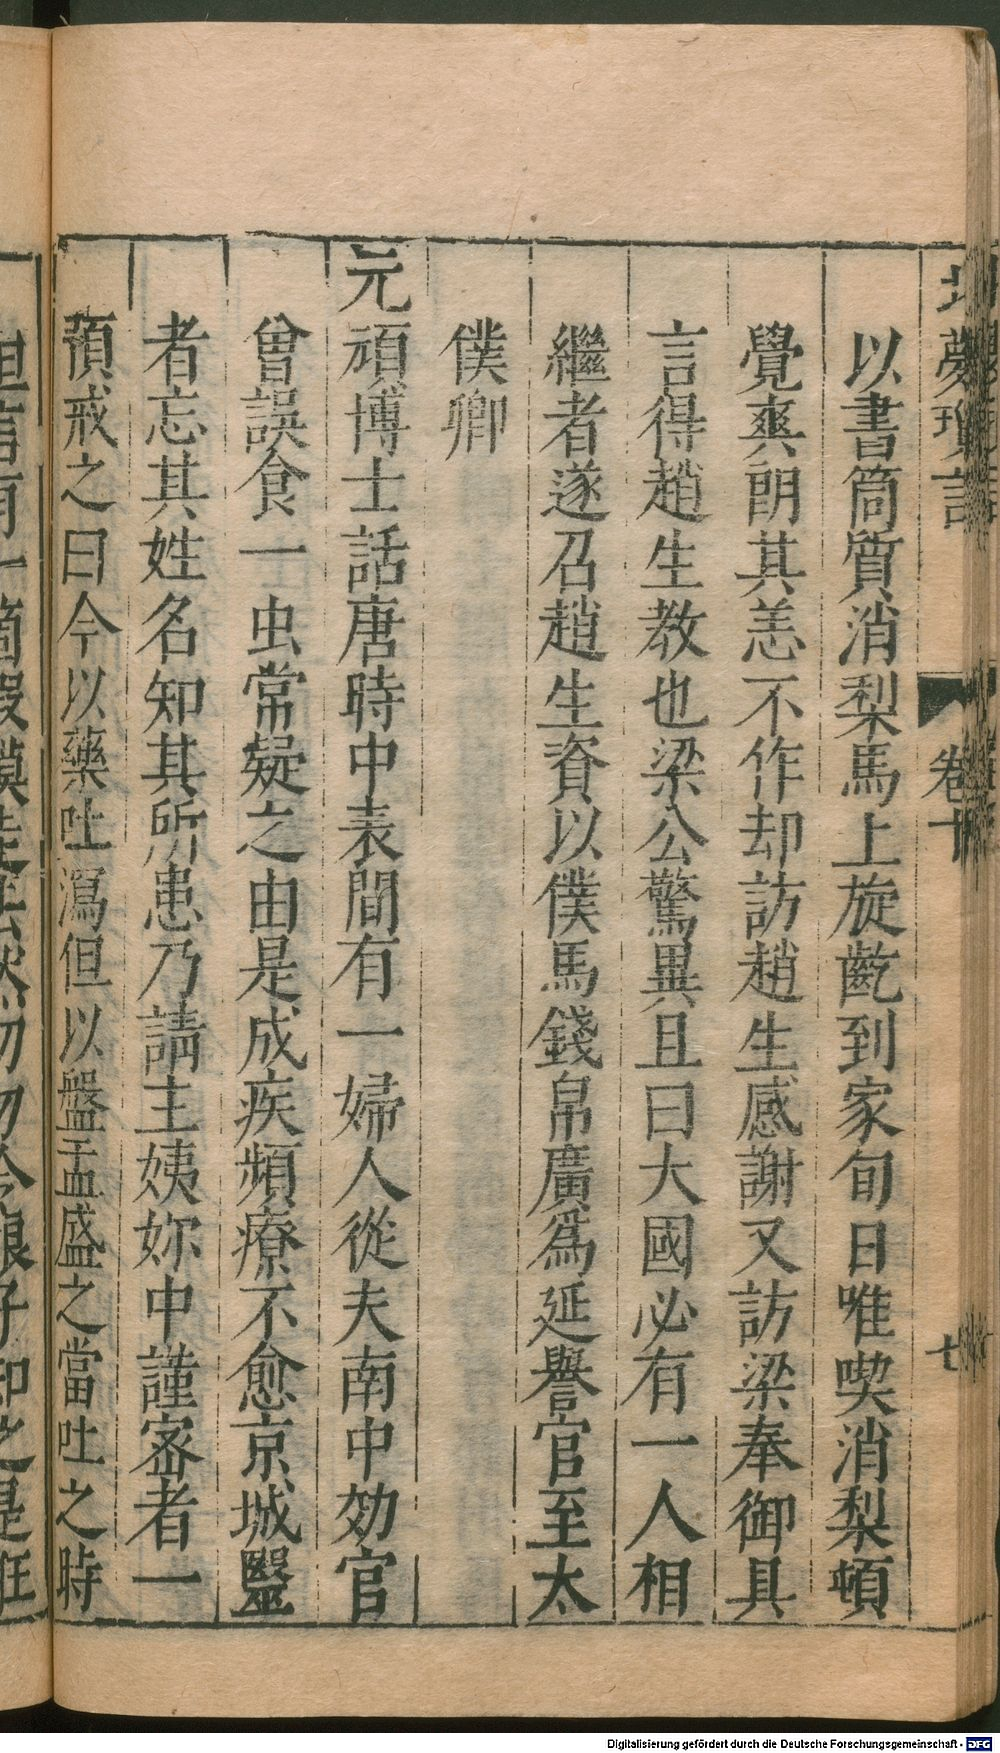 北夢瑣言 卷十 七
以書筒質消梨馬上旋齕到家旬日唯喫消梨頓
覺爽朗其恙不作却訪趙生感謝又訪梁奉御具
言得趙生教也梁公驚異且曰大國必有一人相
繼者遂召趙生資以僕馬錢帛廣爲延譽官至太
僕卿
元頏博士話唐時中表間有一婦人從夫南中効官
曾誤食一虫常疑之由是成疾頻療不愈京城醫
者忘其姓名知其所患乃請主姨妳中謹密者一
預戒之曰今以藥吐瀉但以盤盂盛之當吐之時
但言有一箇蝦蟆走去然勿勿令娘子知之是誑
Digitalisierung gefördert durch die Deutsche Forschungsgemeinschaft - DFG